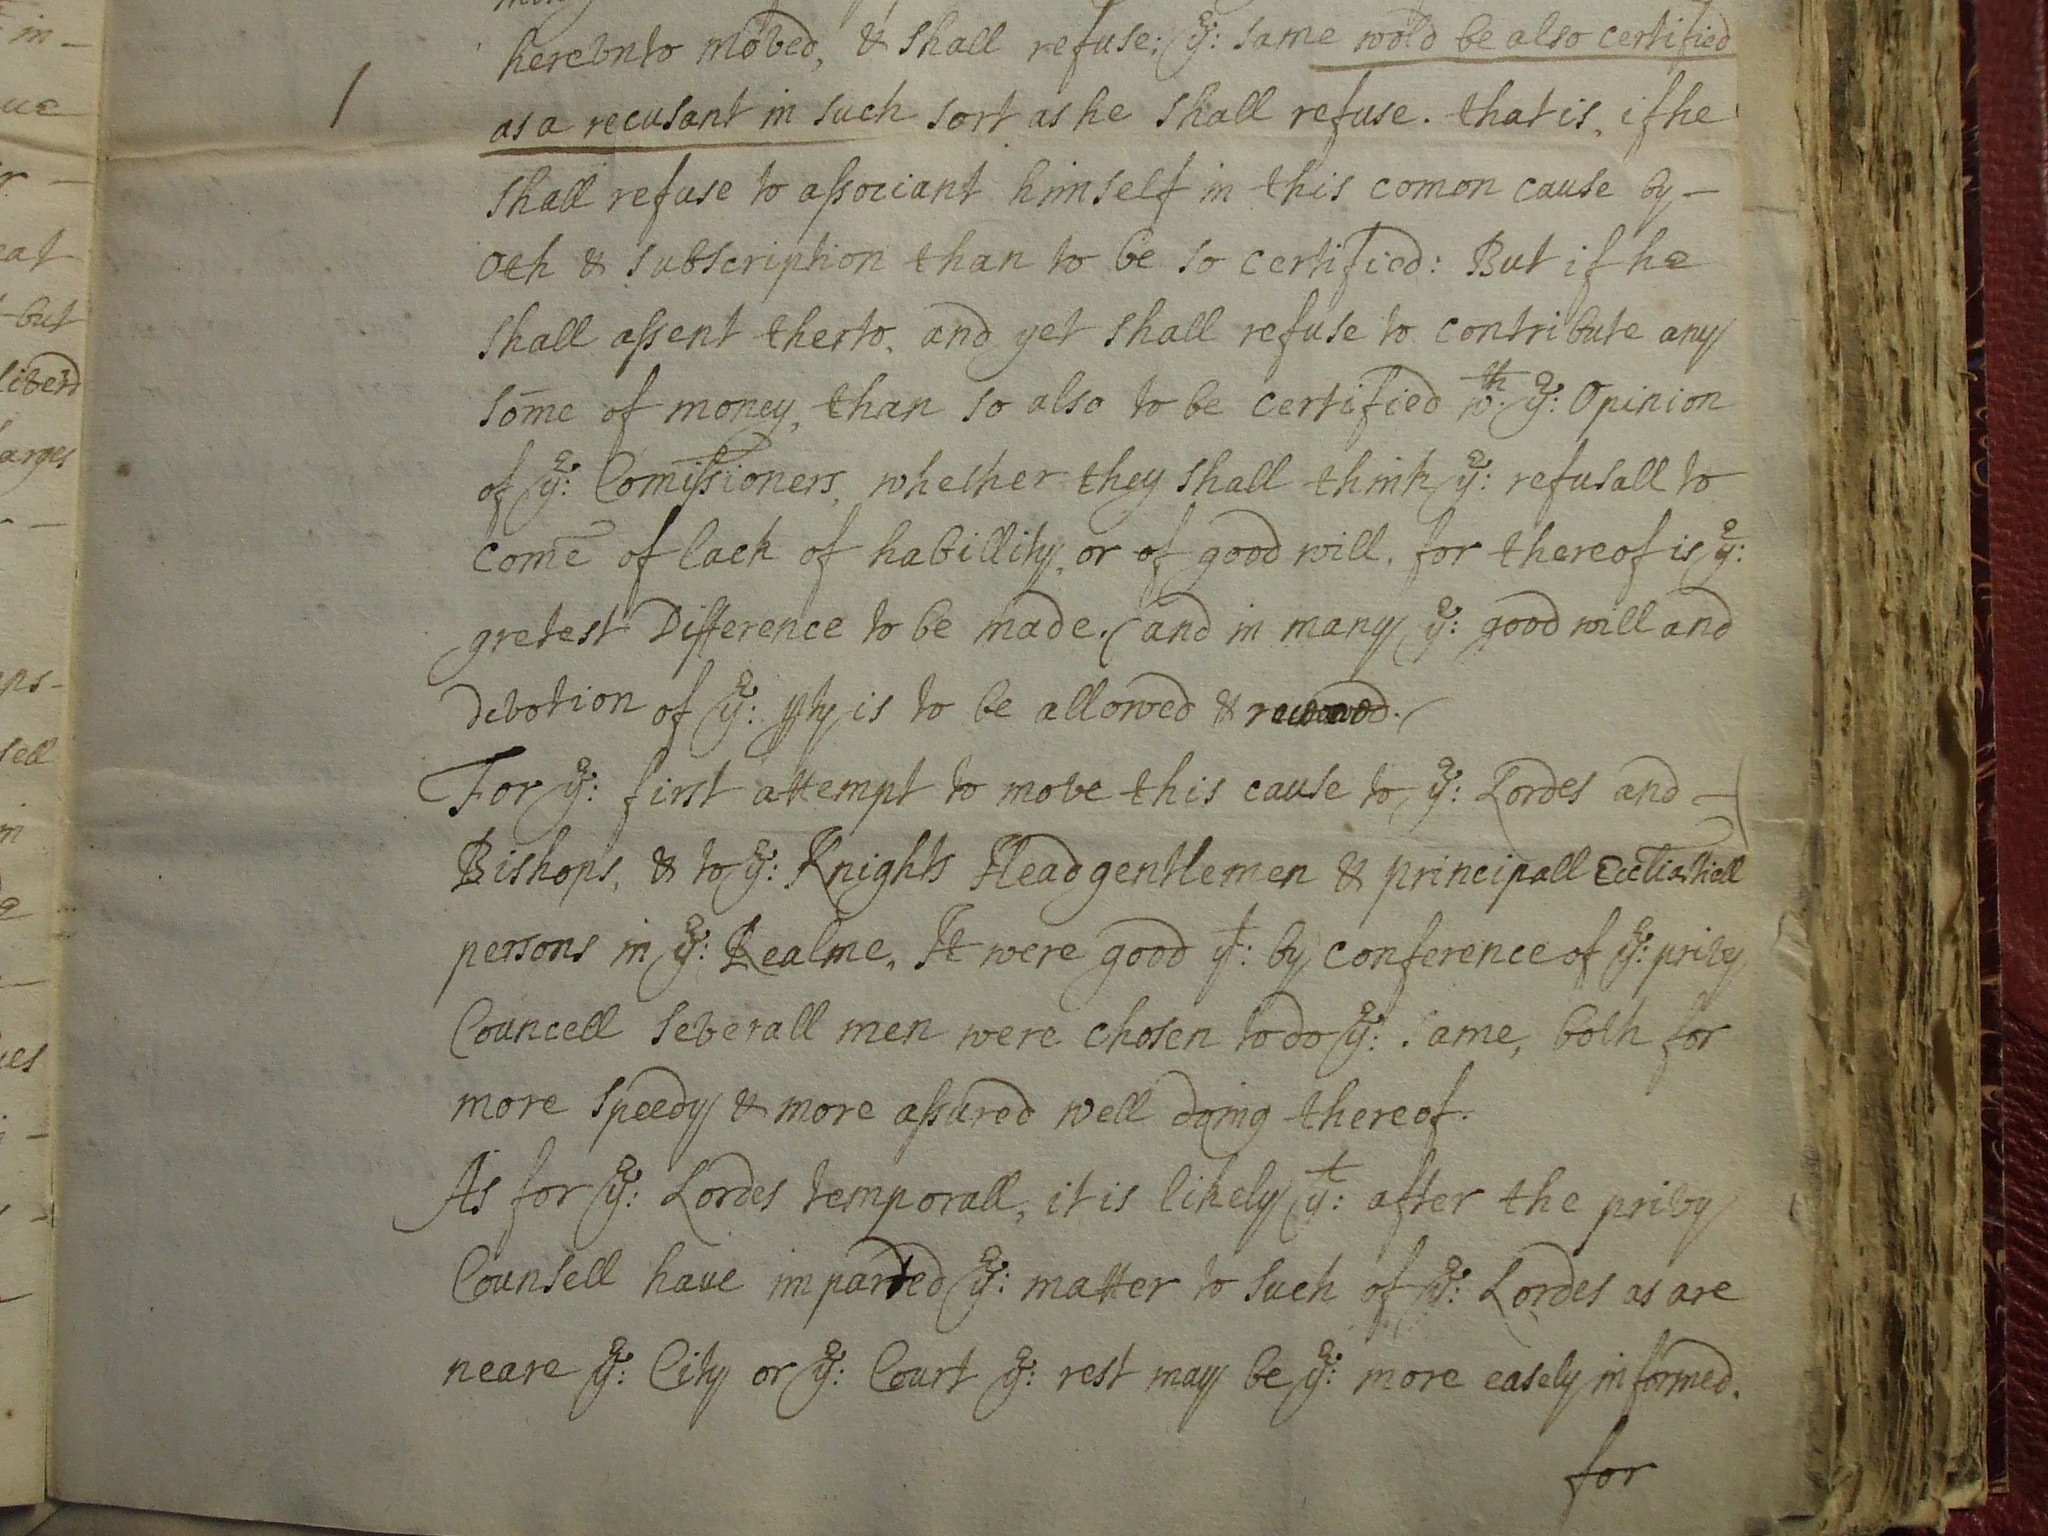 hereunto moved, & shall refuse: yᵉ: same wold be also certified
as a recusant in such sort as he shall refuse. that is, if he
shall refuse to associant himself in this comon cause by –
Oth & subscription than to be so certified: But if he
shall assent therto, and yet shall refuse to contribute any
some of money, than so also to be certified wᵗʰ. yᵉ: Opinion
of yᵉ: Comissioners, whether they shall think yᵉ: refusall to
come of lack of habillity, or of good will, for thereof is yᵉ:
gretest Difference to be made. (and in many yᵉ: good will and
devotion of yᵉ: is to be allowed &
For yᵉ: first attempt to move this cause to yᵉ: Lordes and –
Bishops, & to yᵉ: Knights Head gentlemen & principall Ecclīasticll
persons in yᵉ: Realme, It were good yᵗ: by conference of yᵉ: privy
Councell severall men were chosen to do yᵉ: same, both for
more speedy & more assured well doing thereof.
As for yᵉ: Lordes temporall, it is likely yᵗ: after the privy
Counsell have imparted yᵉ: matter to such of yᵉ: Lordes as are
neare yᵉ: City or yᵉ: Court yᵉ: rest may be yᵉ: more easely informed.
for
in –
ue
r –
eat
but
liverd
arges
ps –
sell
m
ues